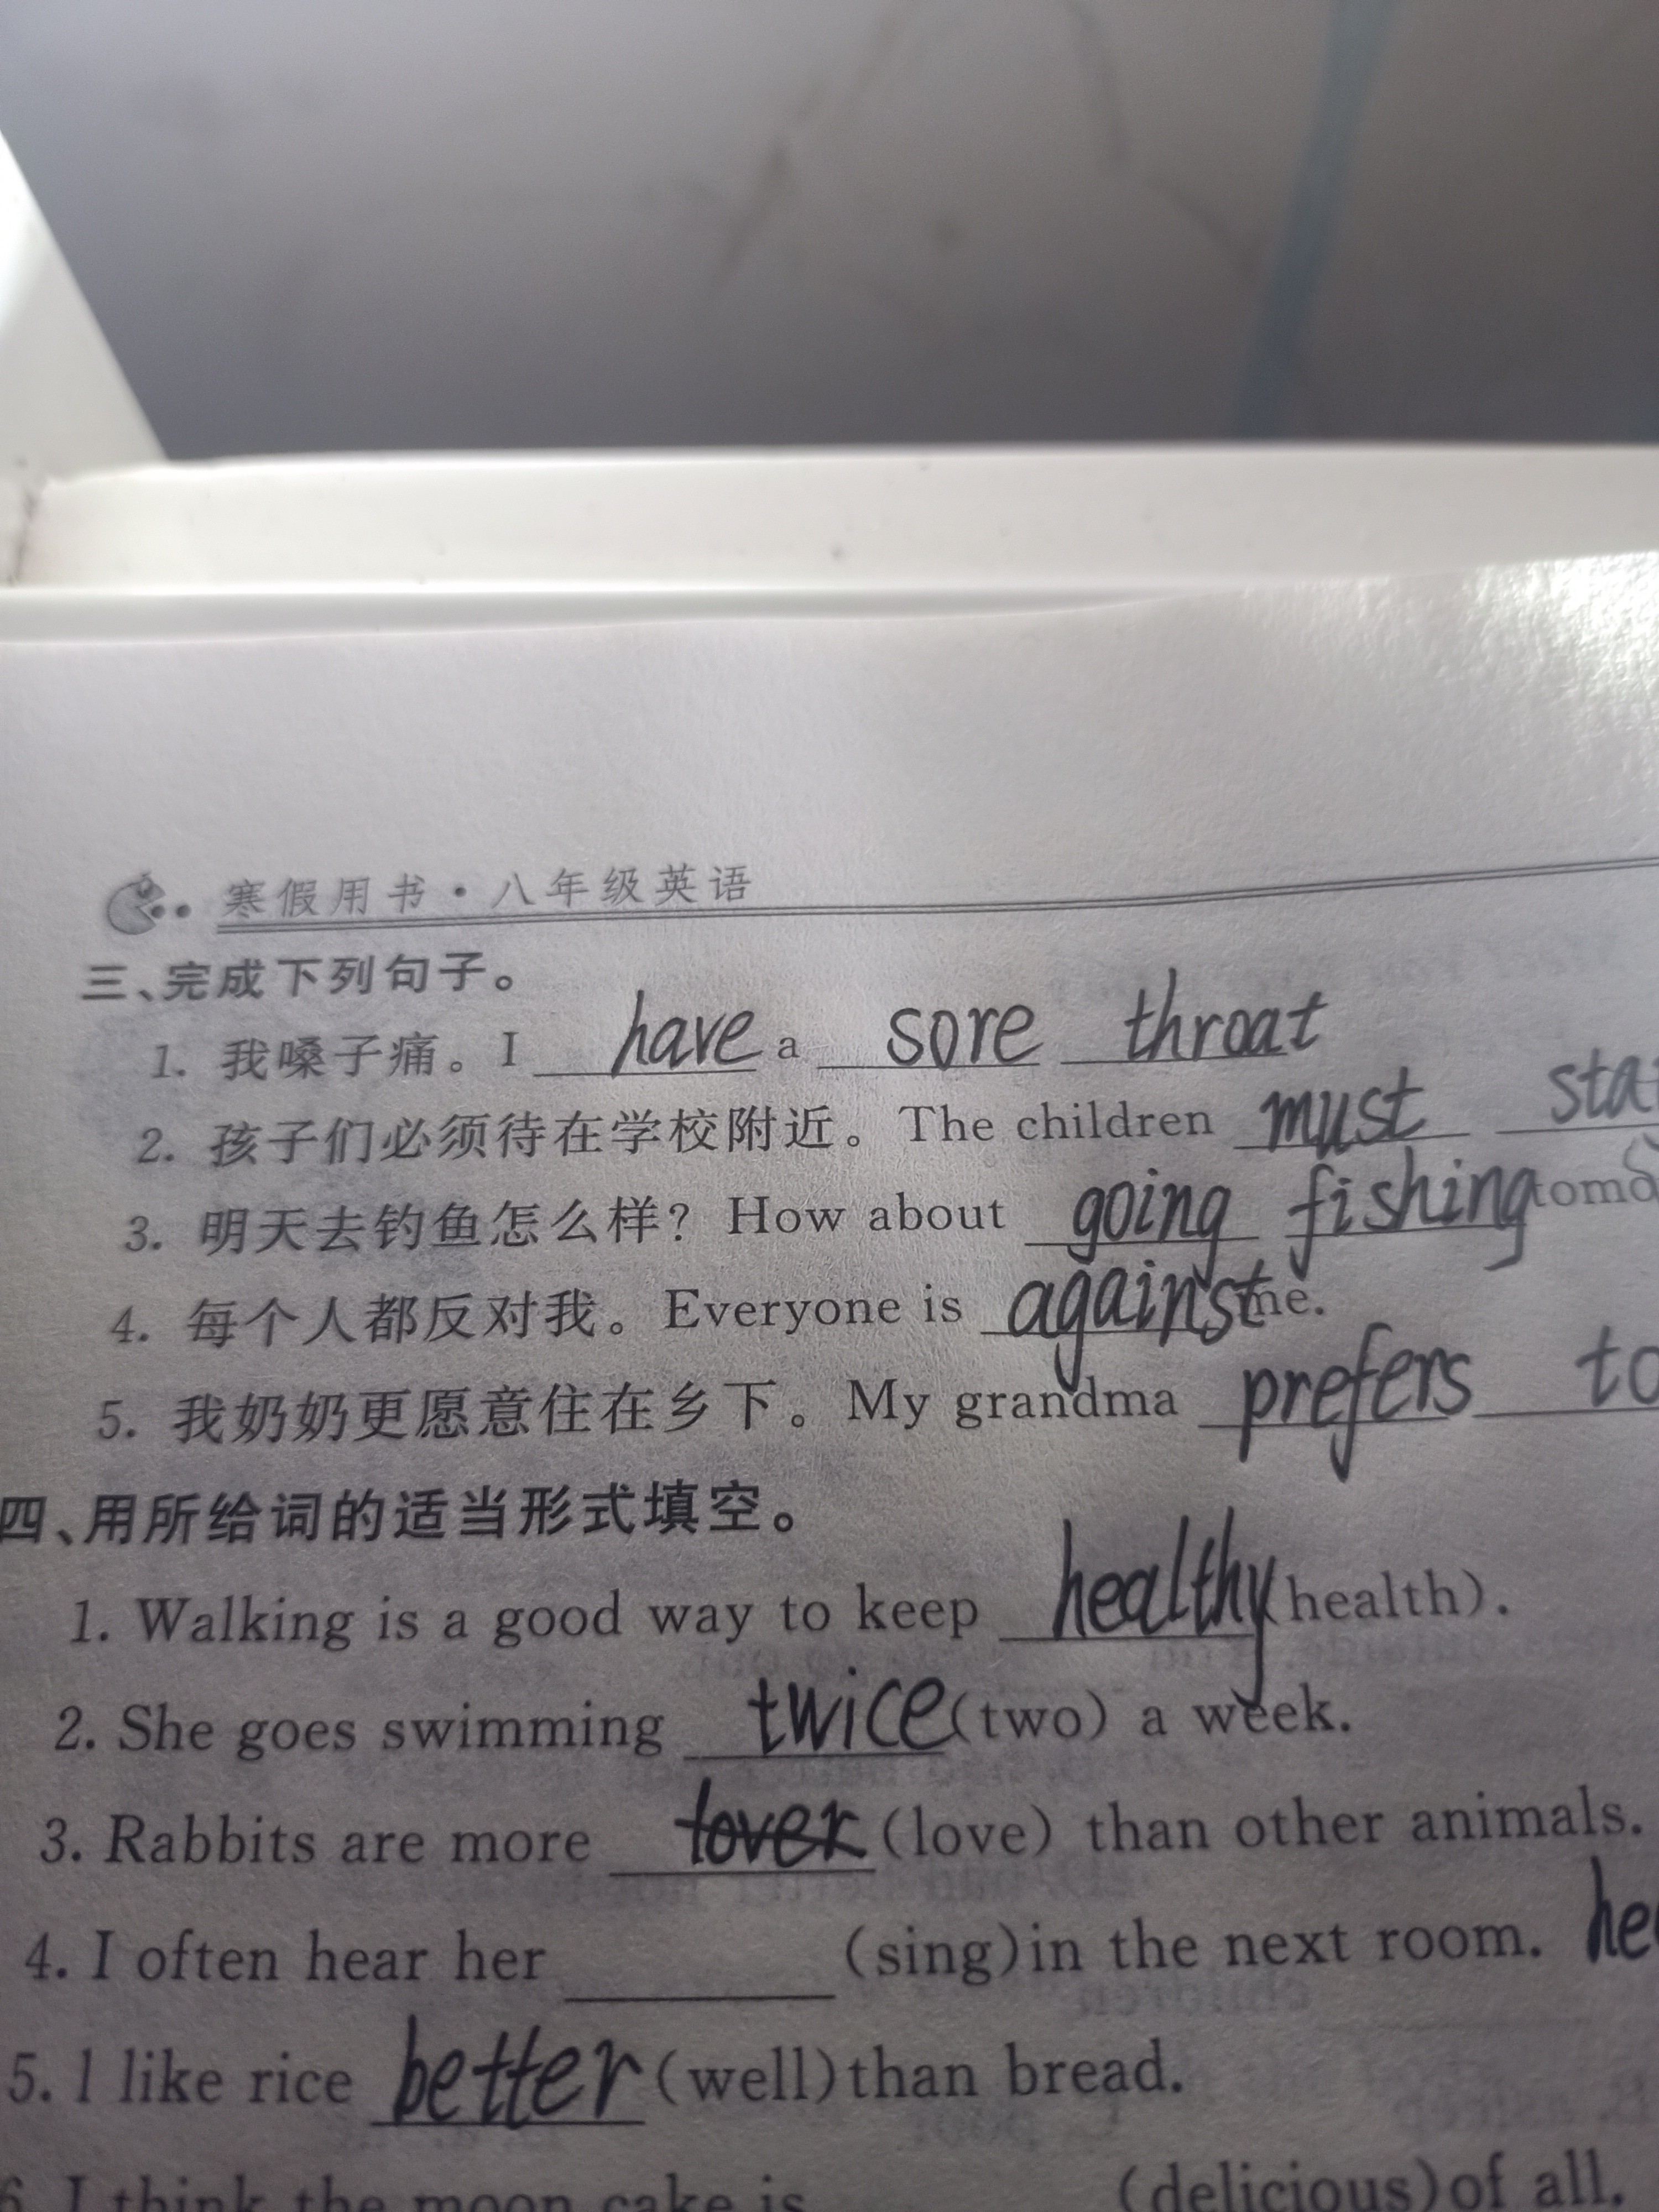 寒假用书·八年级英语
三、完成下列句子。
1. 我嗓子痛。I have a sore throat
2. 孩子们必须待在学校附近。The children must
3. 明天去钓鱼怎么样？How about going fishing
4. 每个人都反对我。Everyone is against me.
5. 我奶奶更愿意住在乡下。My grandma prefers to
四、用所给词的适当形式填空。
1. Walking is a good way to keep healthy (health).
2. She goes swimming twice (two) a week.
3. Rabbits are more lover (love) than other animals.
4. I often hear her ______ (sing) in the next room.
5. I like rice better (well) than bread.
6. I think the moon cake is ______ (delicious) of all.